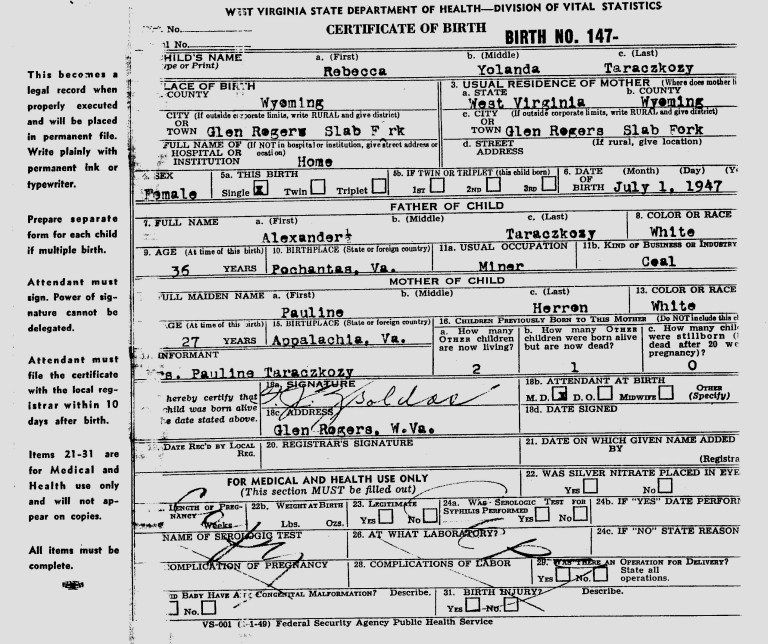 WEST VIRGINIA STATE DEPARTMENT OF HEALTH—DIVISION OF VITAL STATISTICS
No.
CERTIFICATE OF BIRTH
BIRTH NO. 147-
No.
CHILD'S NAME a. (First) b. (Middle) c. (Last)
(Type or Print) Rebecca Yolanda Taraczkozy
This becomes a legal record when properly executed and will be placed in permanent file. Write plainly with permanent ink or typewriter.
PLACE OF BIRTH
COUNTY
Wyoming
3. USUAL RESIDENCE OF MOTHER (Where does mother
a. STATE b. COUNTY
West Virginia Wyoming
CITY (If outside corporate limits, write RURAL and give district)
OR
TOWN Glen Rogers Slab F rk
c. CITY (If outside corporate limits, write RURAL and give district)
OR
TOWN Glen Rogers Slab Fork
FULL NAME OF (If NOT in hospital or institution, give street address or location)
HOSPITAL OR
INSTITUTION Home
d. STREET (If rural, give location)
ADDRESS
SEX
Female
5a. THIS BIRTH
Single x Twin Triplet
5b. IF TWIN OR TRIPLET (this child born)
1ST 2ND 3RD
6. DATE (Month) (Day)
OF
BIRTH July 1, 1947
Prepare separate form for each child if multiple birth.
FATHER OF CHILD
7. FULL NAME a. (First) b. (Middle) c. (Last)
Alexander Taraczkozy
8. COLOR OR RACE
White
9. AGE (At time of this birth)
36 YEARS
10. BIRTHPLACE (State or foreign country)
Pochantas, Va.
11a. USUAL OCCUPATION
Miner
11b. KIND OF BUSINESS OR INDUSTRY
Coal
Attendant must sign. Power of signature cannot be delegated.
MOTHER OF CHILD
FULL MAIDEN NAME a. (First) b. (Middle) c. (Last)
Pauline Herron
13. COLOR OR RACE
White
AGE (At time of this birth)
27 YEARS
15. BIRTHPLACE (State or foreign country)
Appalachia, Va.
16. CHILDREN PREVIOUSLY BORN TO THIS MOTHER (Do NOT include this
a. How many OTHER children are now living?
2
b. How many OTHER children were born alive but are now dead?
1
c. How many
were stillborn
dead after 20
pregnancy)?
0
INFORMANT
s. Pauline Taraczkozy
Attendant must file the certificate with the local registrar within 10 days after birth.
hereby certify that
child was born alive
date stated above.
18a. SIGNATURE
18c. ADDRESS
Glen Rogers, W.Va.
18b. ATTENDANT AT BIRTH
M. D. x D. O. MIDWIFE OTHER (Specify)
18d. DATE SIGNED
DATE REC'D BY LOCAL REG.
20. REGISTRAR'S SIGNATURE
21. DATE ON WHICH GIVEN NAME ADDED
BY
(Registra
Items 21-31 are for Medical and Health use only and will not appear on copies.
FOR MEDICAL AND HEALTH USE ONLY
(This section MUST be filled out)
22. WAS SILVER NITRATE PLACED IN EYE
YES NO
LENGTH OF PREGNANCY
Weeks
22b. WEIGHT AT BIRTH
Lbs. Ozs.
23. LEGITIMATE
YES NO
24a. WAS SEROLOGIC TEST FOR SYPHILIS PERFORMED
YES NO
24b. IF "YES" DATE PERFOR
NAME OF SEROLOGIC TEST
26. AT WHAT LABORATORY?
24c. IF "NO" STATE REASON
COMPLICATION OF PREGNANCY
28. COMPLICATIONS OF LABOR
29. WAS THERE AN OPERATION FOR DELIVERY?
YES NO. State all operations.
All items must be complete.
BABY HAVE A CONGENITAL MALFORMATION? Describe.
No.
31. BIRTH INJURY? Describe.
YES No.
VS-001 ( -1-49) Federal Security Agency Public Health Service